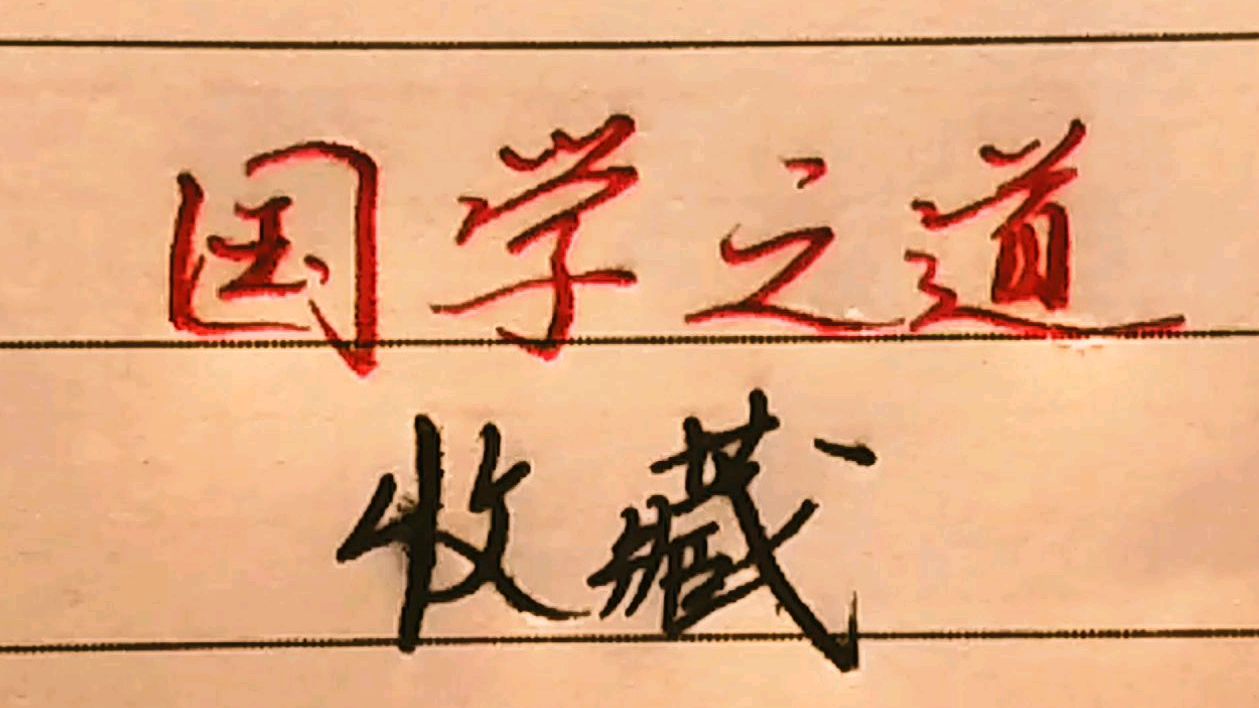 国学之道
收藏